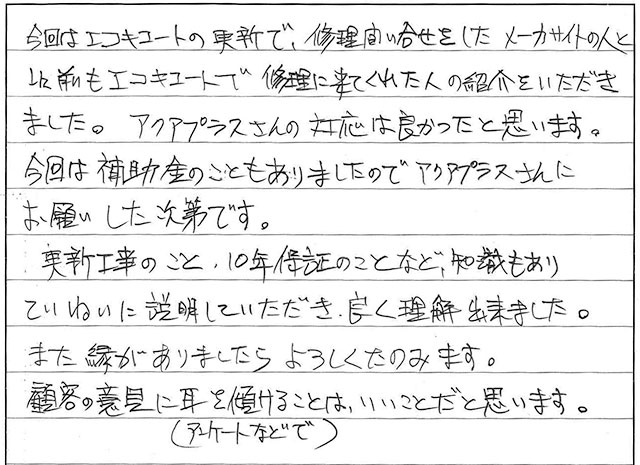 今回はエコキュートの更新で、修理問い合せをしたメーカサイトの人と
以前もエコキュートで修理に来てくれた人の紹介をいただき
ました。アクアプラスさんの対応は良かったと思います。
今回は補助金のこともありましたのでアクアプラスさんに
お願いした次第です。
更新工事のこと、10年保証のことなど、知識もあり
ていねいに説明していただき、良く理解出来ました。
また縁がありましたらよろしくたのみます。
顧客の意見に耳を傾けることは、いいことだと思います。
(アンケートなどで)